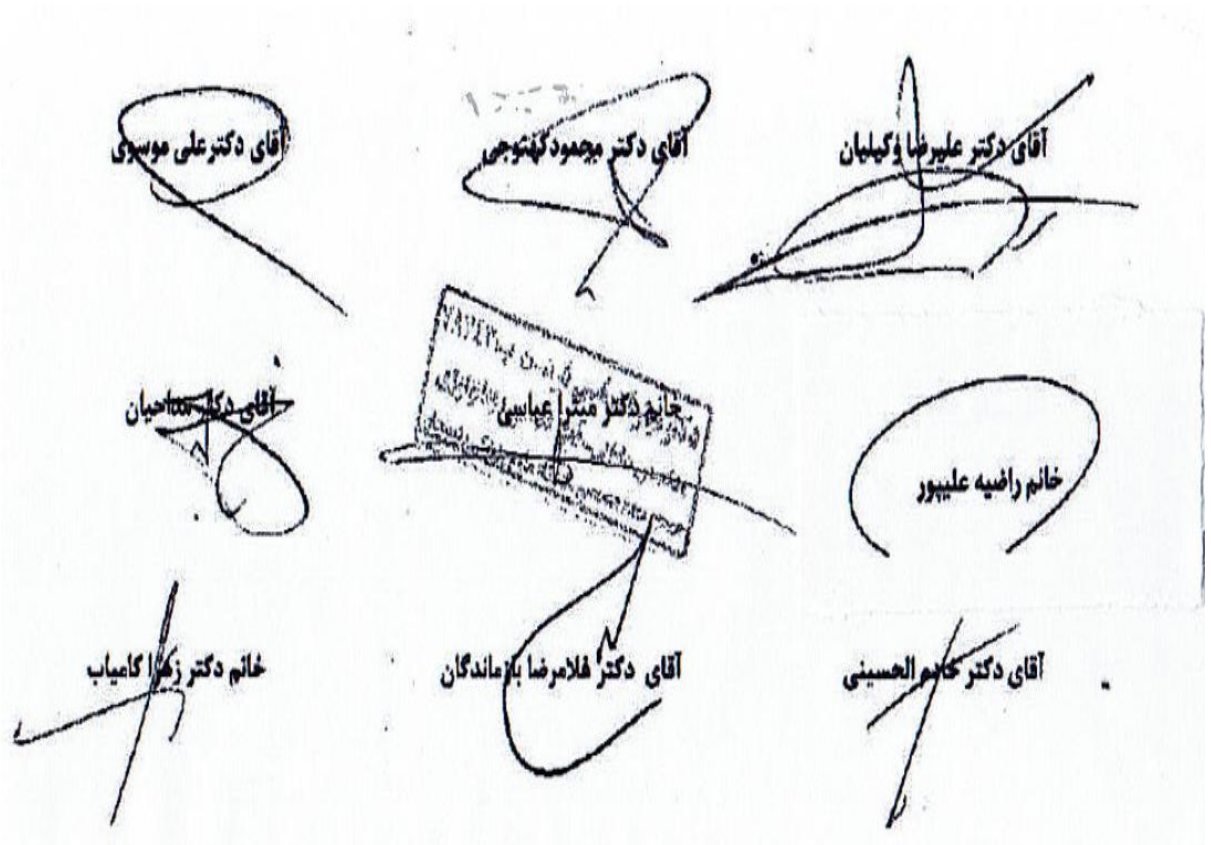 آقای دکتر علیرضا وکیلیان
آقای دکتر محمود کهتوجی
آقای دکتر علی موسوی
خانم راضیه علیپور
خانم دکتر میترا عباسی
آقای دکتر مداحیان
آقای دکتر خاتم الحسینی
آقای دکتر غلامرضا بازماندگان
خانم دکتر زهرا کامیاب